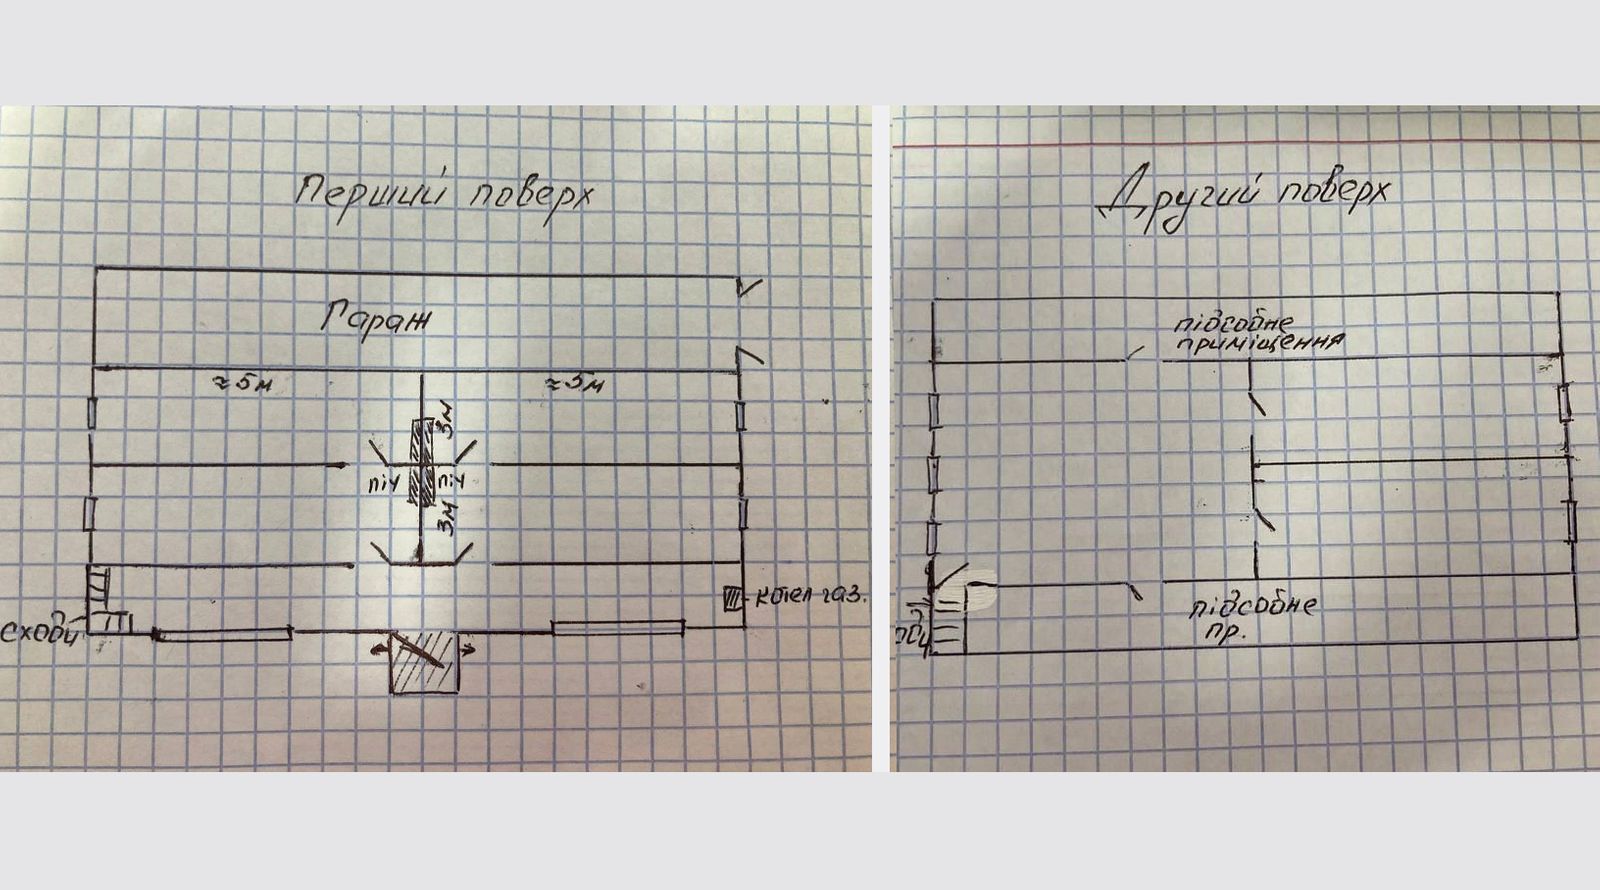 Перший поверх
Гараж
≈5м
≈5м
3м
піч
піч
3м
сходи
котел газ.
Другий поверх
підсобне
приміщення
підсобне
пр.